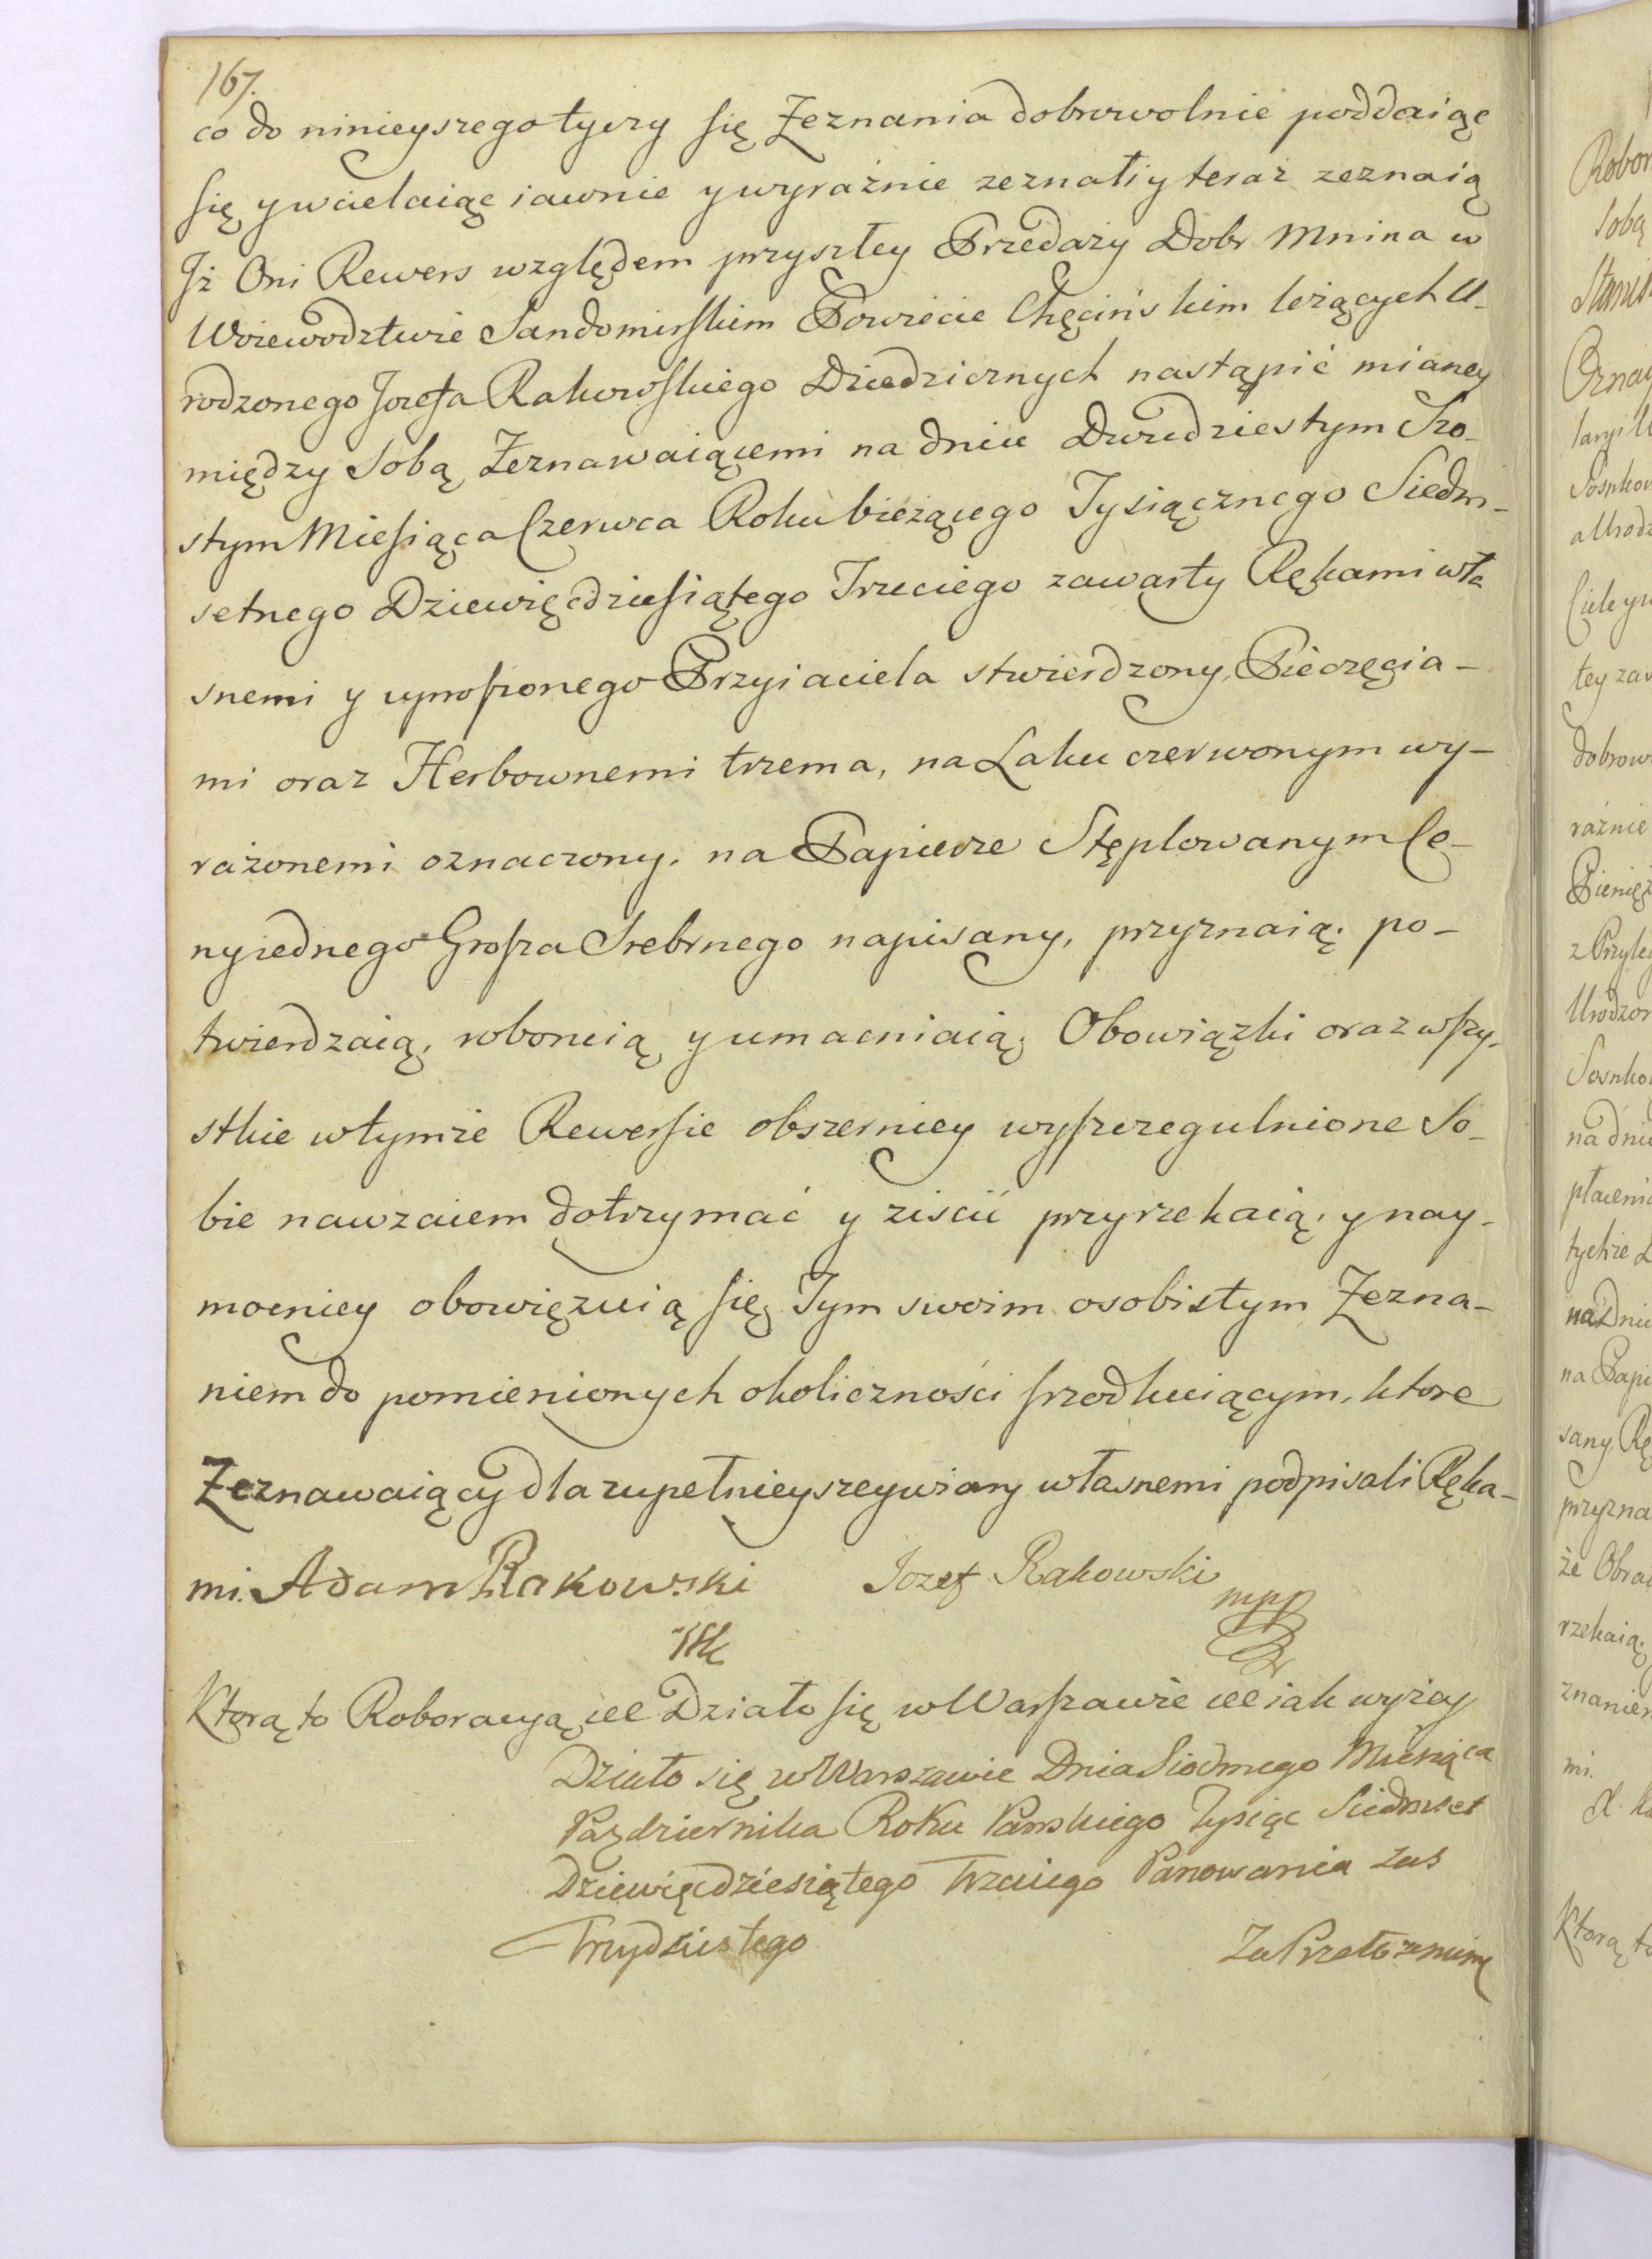 167.
co do ninieyszego tyczy się Zeznania dobrowolnie poddaiąc
się y wcielaiąc iawnie y wyraźnie zeznali y teraz zeznaią
Jż Oni Rewers względem przyszłey Przedaży Dobr Mnina w
Woiewodztwie Sandomirskim Powiecie Chęcińskim leżących U-
rodzonego Jozefa Rakowskiego Dziedzicznych nastąpić mianey
między Sobą Zeznawaiącemi na dniu Dwudziestym Szo-
stym Miesiąca Czerwca Roku bieżącego Tysiącznego Siedm-
setnego Dziewięćdziesiątego Trzeciego zawarty Rękami wła
snemi y uproszonego Przyiaciela stwierdzony, Pieczęcia-
mi oraz Herbownemi trzema, na Laku czerwonym wy-
rażonemi oznaczony, na Papierze Stęplowanym Ce-
ny iednego Grosza Srebrnego napisany, przyznaią, po-
twierdzaią, roboruią y umacniaią, Obowiązki oraz wszy-
stkie w tymże Rewersie obszerniey wyszczegulnione So-
bie nawzaiem dotrzymać y ziścić przyrzekaią, y nay-
mocniey obowięzuią się, Tym swoim osobistym Zezna-
niem do pomienionych okoliczności srzodkuiącym, ktore
Zeznawaiący dla zupełnieyszey wiary własnemi podpisali Ręka-
mi. Adam Rakowski Jozef Rakowski
mpp
Ktorą to Roboracyą etc Działo się w Warszawie etc iak wyżey
Działo się w Warszawie Dnia Siodmego Miesiąca
Pazdziernika Roku Panskiego Tysiąc Siedmset
Dziewięcdziesiątego Trzeciego Panowania zas
Trzydziestego
Robor
Sobą
Ktorą to